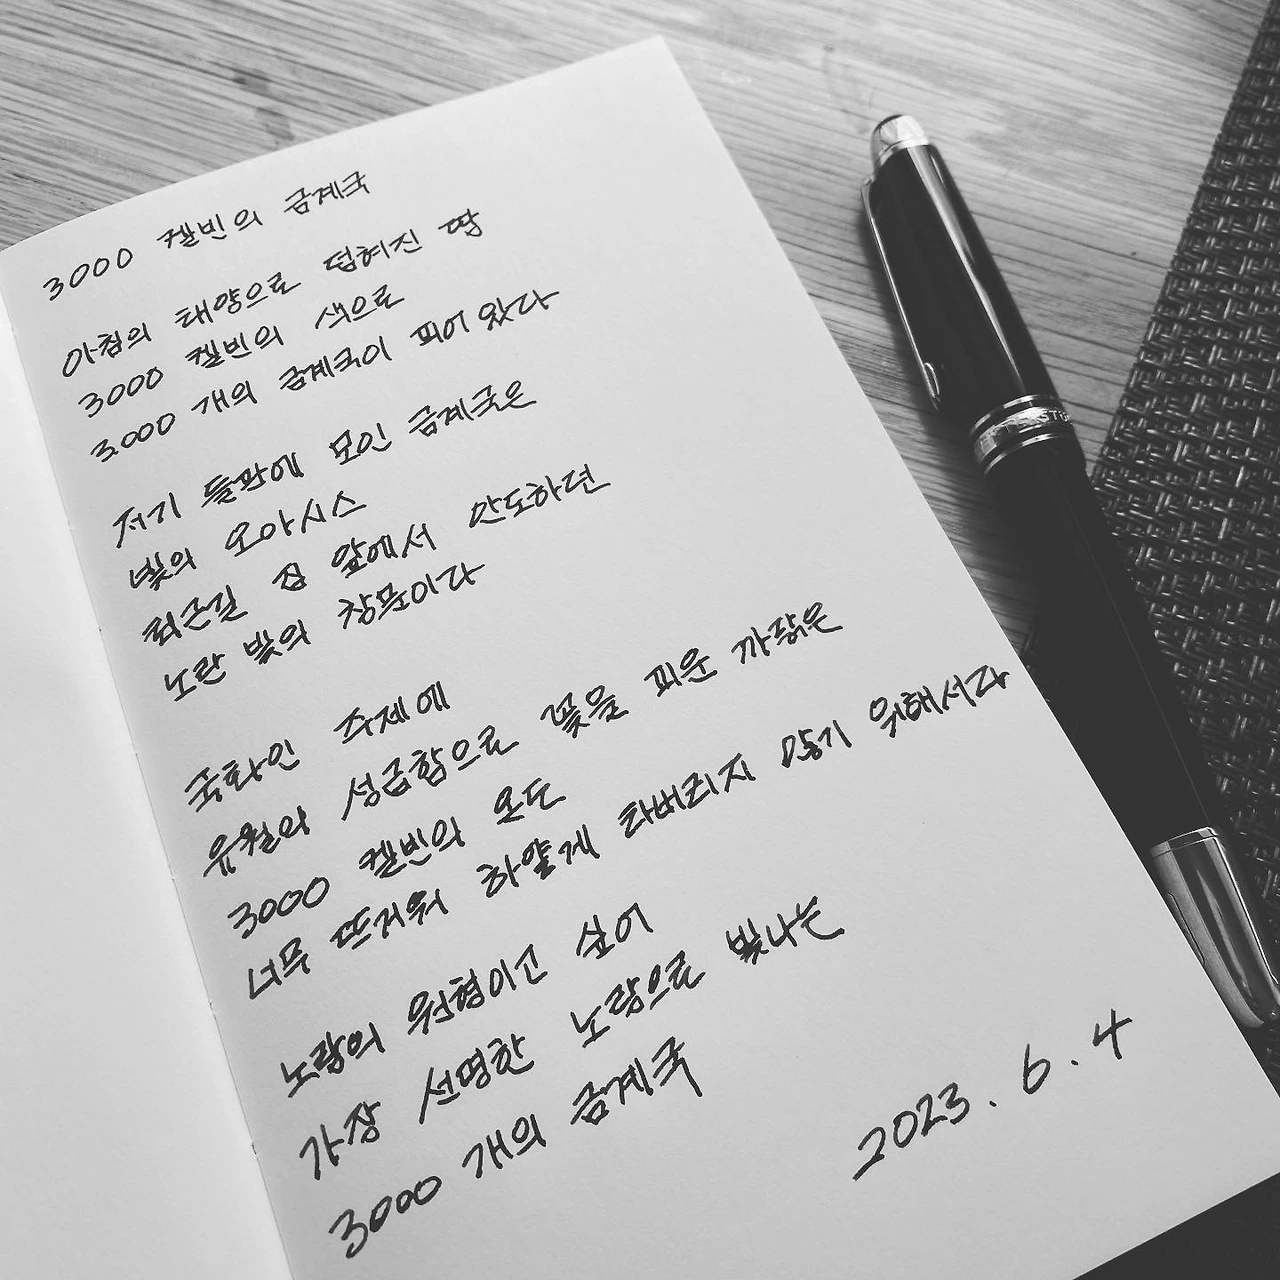 3000 켈빈의 금계국
아침의 태양으로 덥혀진 땅
3000 켈빈의 색으로
3000 개의 금계국이 피어 왔다
저기 들판에 모인 금계국은
빛의 오아시스
퇴근길 집 앞에서 안도하던
노란 빛의 창문이다
국화인 주제에
유월의 성급함으로 꽃을 피운 까닭은
3000 켈빈의 온도
너무 뜨거워 하얗게 타버리지 않기 위해서다
노랑의 원형이고 싶어
가장 선명한 노랑으로 빛나는
3000 개의 금계국
2023. 6. 4